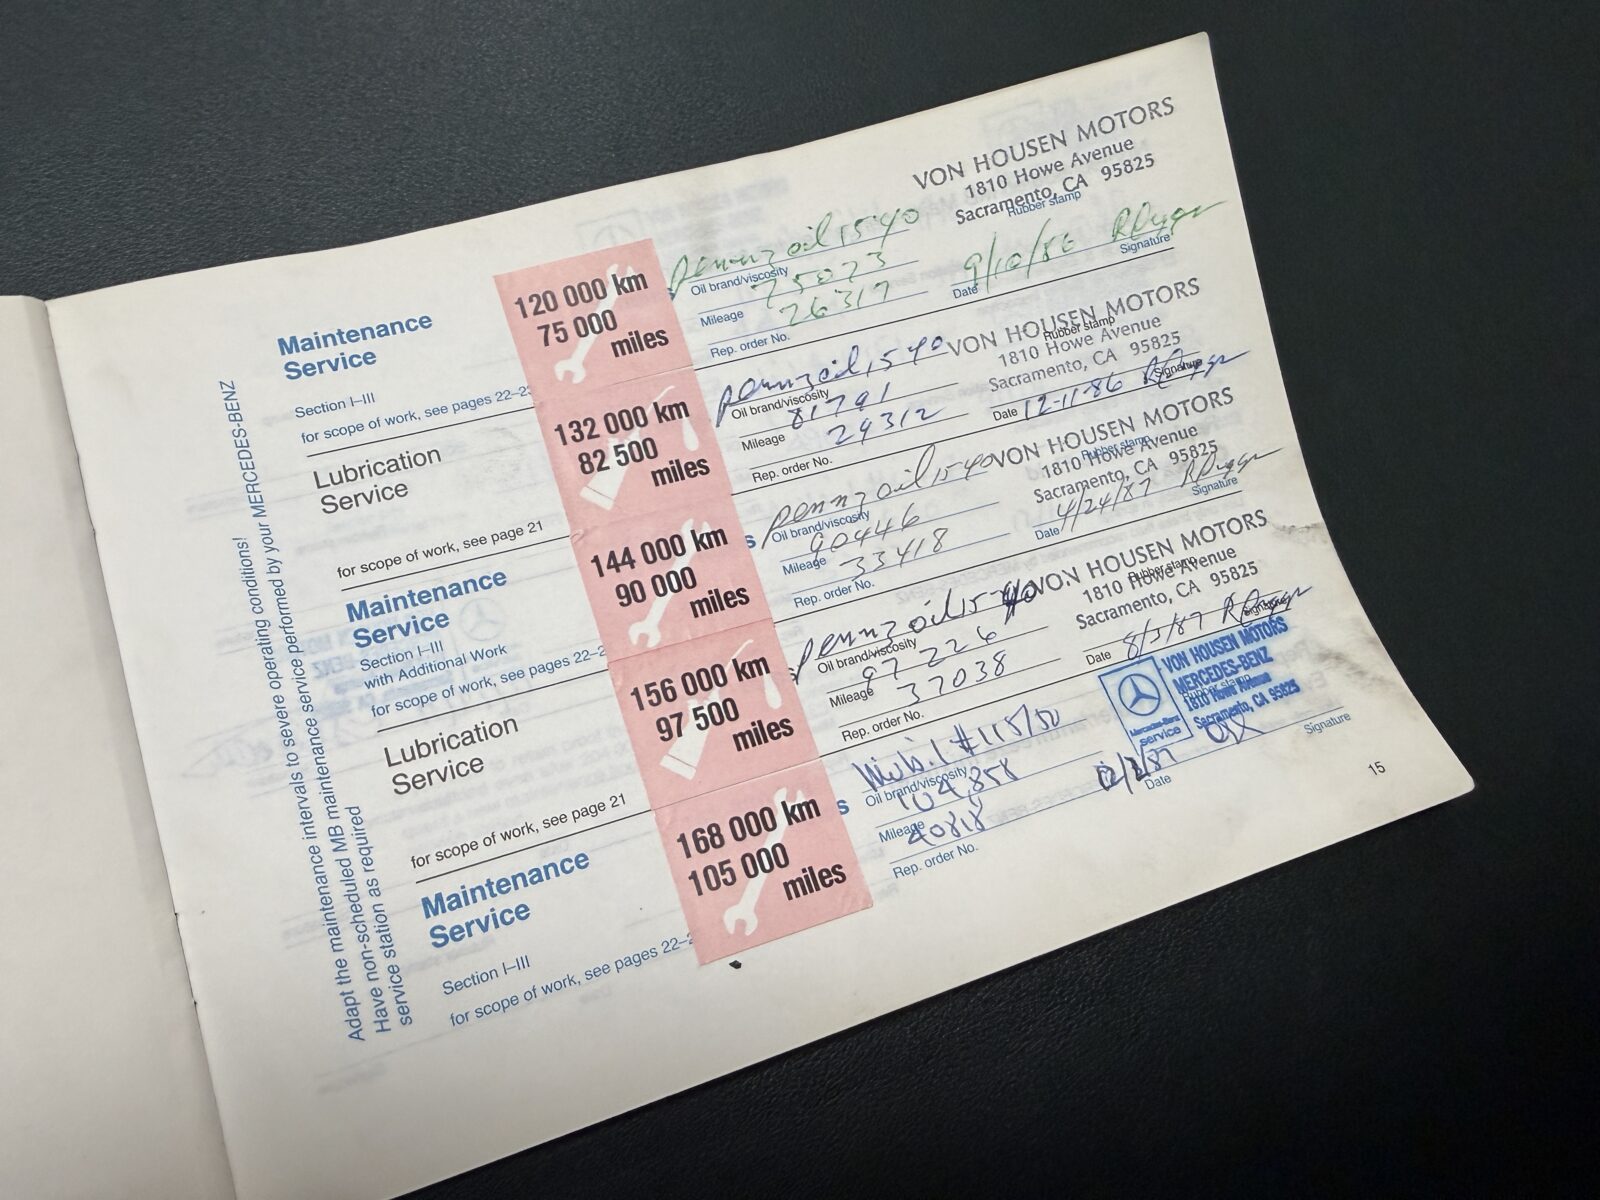 Adapt the maintenance intervals to severe operating conditions!
Have non-scheduled MB maintenance service performed by your MERCEDES-BENZ
service station as required
Maintenance
Service
Section I–III
for scope of work, see pages 22–23
120 000 km
75 000
miles
pennzoil 15 40
Oil brand/viscosity
75023
Mileage
26317
Rep. order No.
VON HOUSEN MOTORS
1810 Howe Avenue
Sacramento, CA 95825
Rubber stamp
9/10/86
Date
Signature
Lubrication
Service
for scope of work, see page 21
132 000 km
82 500
miles
pennzoil, 15 40
Oil brand/viscosity
81791
Mileage
29312
Rep. order No.
VON HOUSEN MOTORS
Rubber stamp
1810 Howe Avenue
Sacramento, CA 95825
Date 12-11-86
Signature
Maintenance
Service
Section I–III
with Additional Work
for scope of work, see pages 22–2
144 000 km
90 000
miles
s
pennzoil 15 40
Oil brand/viscosity
90446
Mileage
33418
Rep. order No.
VON HOUSEN MOTORS
1810 Howe Avenue
Rubber stamp
Sacramento, CA 95825
Date 4/24/87
Signature
Lubrication
Service
for scope of work, see page 21
156 000 km
97 500
miles
pennzoil 15 40
Oil brand/viscosity
97226
Mileage
37038
Rep. order No.
VON HOUSEN MOTORS
Rubber stamp
1810 Howe Avenue
Sacramento, CA 95825
Date 8/3/87
Signature
Maintenance
Service
Section I–III
for scope of work, see pages 22–2
168 000 km
105 000
miles
s
Mobil #1 15/50
Oil brand/viscosity
104,858
Mileage
40818
Rep. order No.
VON HOUSEN MOTORS
MERCEDES-BENZ
Rubber stamp
1810 Howe Avenue
Sacramento, CA 95825
Mercedes-Benz
service
Date
Signature
15